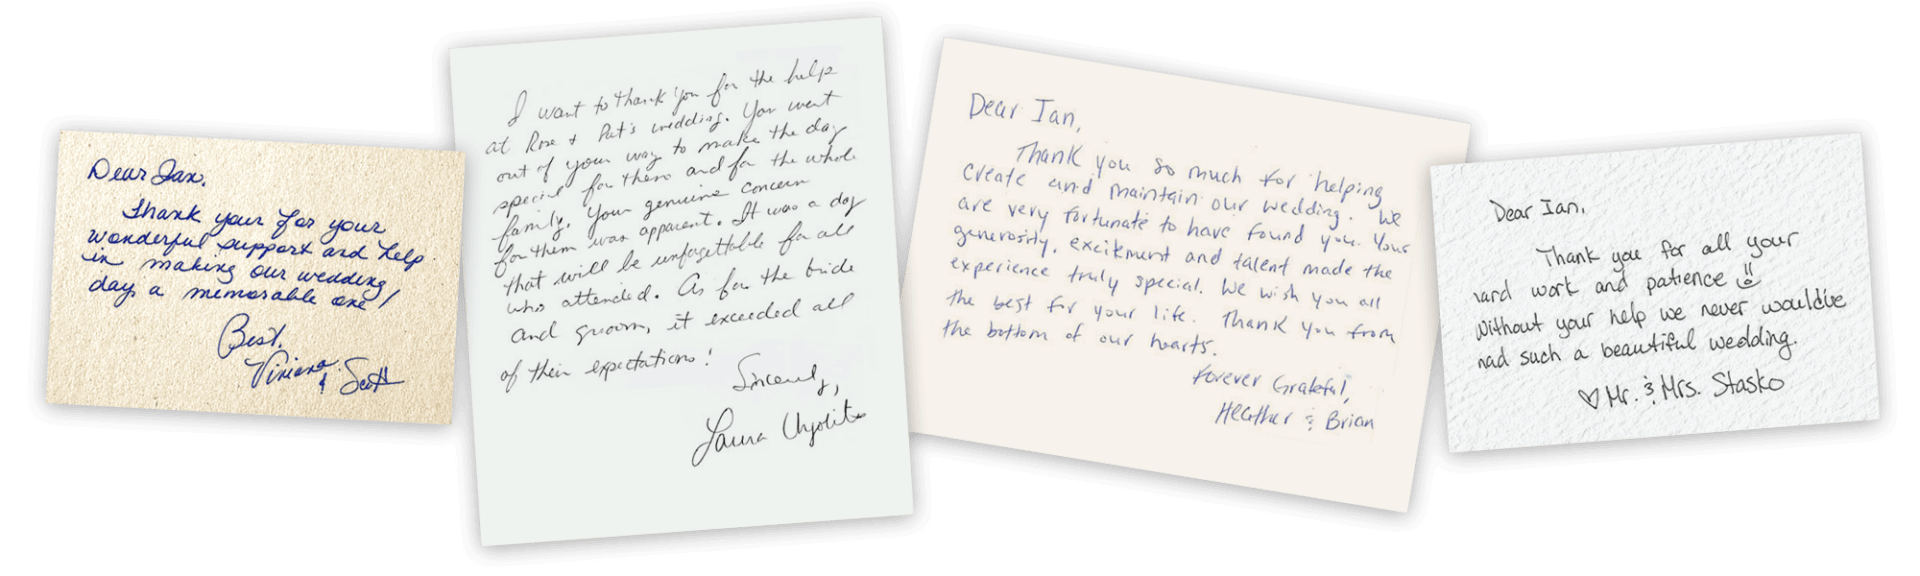 Dear Ian,
Thank your for your
wonderful support and help
in making our wedding
day a memorable one!
Best,
Viviana
& Scott
I want to thank you for the help
at Rose + Pat's wedding. You went
out of your way to make the day
special for them and for the whole
family. Your genuine concern
for them was apparent. It was a day
that will be unforgettable for all
who attended. As for the bride
and groom, it exceeded all
of their expectations!
Sincerely,
Laura
Dear Ian,
Thank you so much for helping
create and maintain our wedding. We
are very fortunate to have found you. Your
generosity, excitement and talent made the
experience truly special. We wish you all
the best for your life. Thank you from
the bottom of our hearts.
Forever Grateful,
Heather & Brian
Dear Ian,
Thank you for all your
hard work and patience
Without your help we never would've
had such a beautiful wedding.
♡ Mr. & Mrs. Stasko